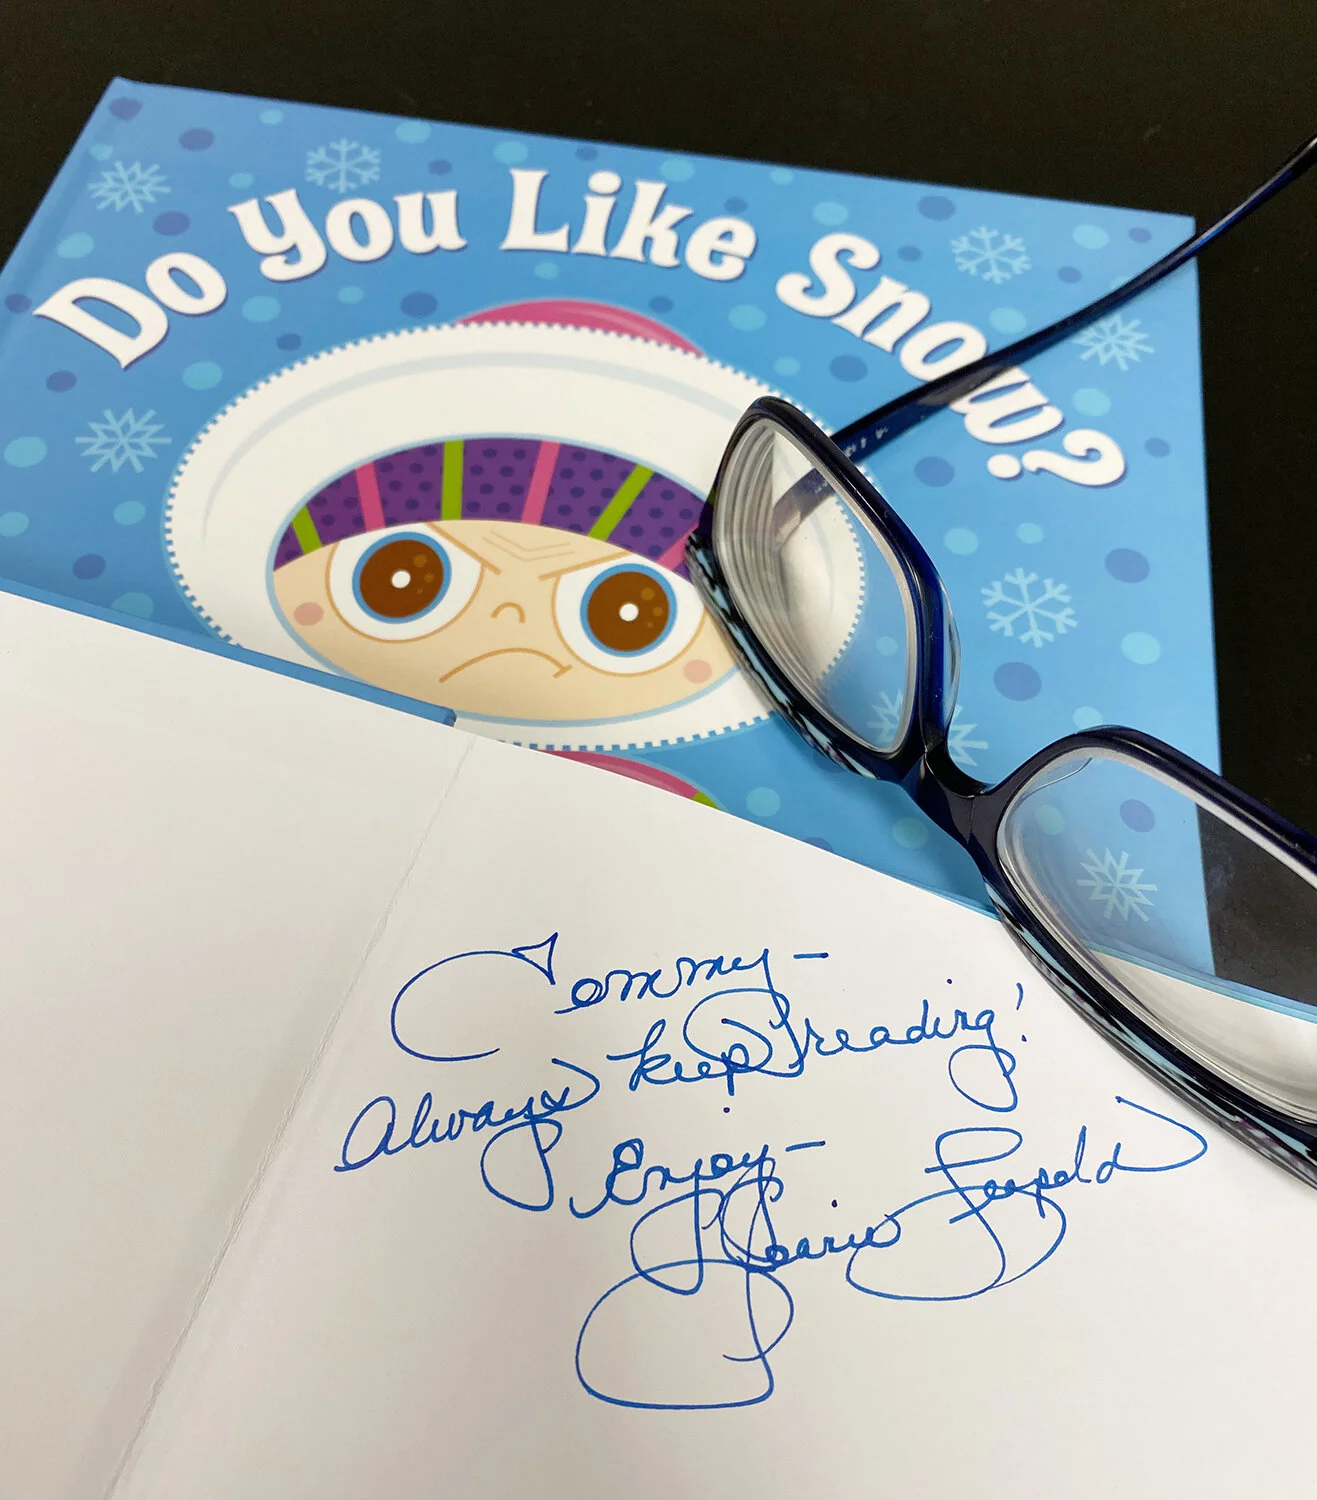 Do You Like Snow?
Tommy -
Always keep reading!
Enjoy -
Marie Leopold